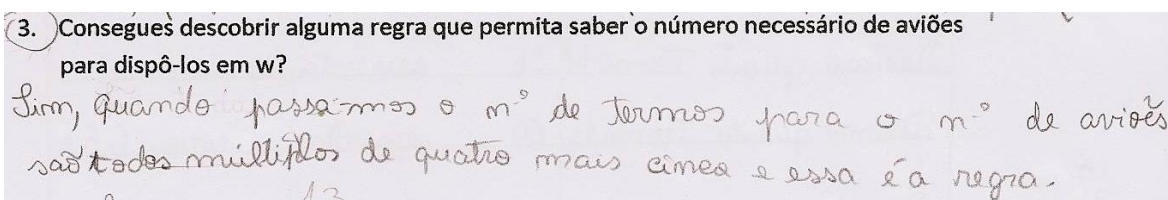 3. Consegues descobrir alguma regra que permita saber o número necessário de aviões
para dispô-los em w?
Sim, quando passa-mos o nº de termos para o nº de aviões
são todos múltiplos de quatro mais cinco e essa é a regra.